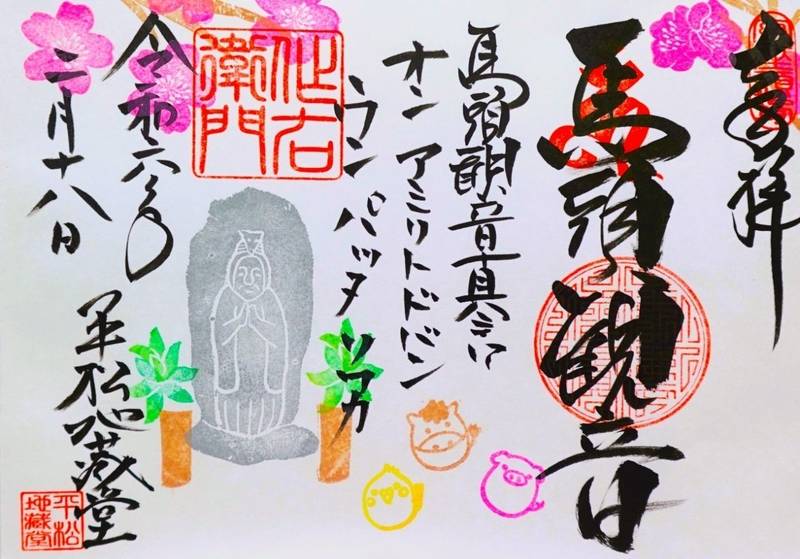 奉拝
馬頭観音
馬頭観音真言
オン アミリトドバン
ウン パッタ ソワカ
右衛門
令和六年
二月十八日
平松地蔵堂
平松
地蔵堂